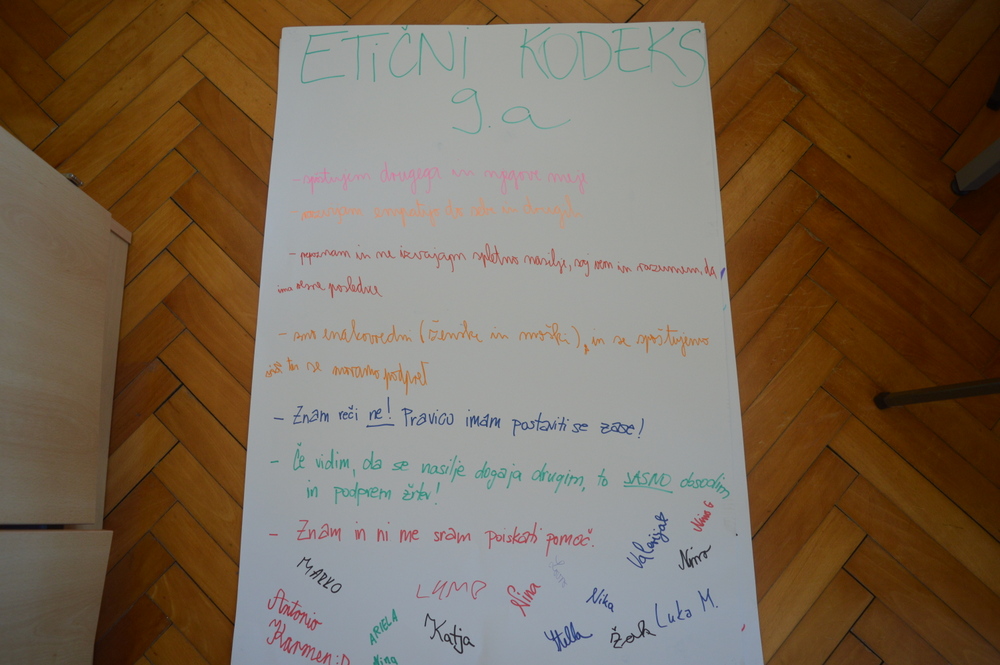 ETIČNI KODEKS
9.a
- spoštujem drugega in njegove meje
- razvijam empatijo do sebe in drugih
- prepoznam in ne izvajam spletno nasilje, saj vem in razumem, da
ima resne posledice
- smo enakovredni (ženske in moški), in se spoštujemo
ter se moramo podpret
- Znam reči ne! Pravico imam postaviti se zase!
- Če vidim, da se nasilje dogaja drugim, to JASNO obsodim
in podprem žrtev!
- Znam in ni me sram poiskati pomoč.
Nino G
Valerija
Nina
MARKO
LUMP
Nina
Nika
Luka M.
Antonio
ARIELA
Katja
Stella
Žak
Karmen :D
Nina